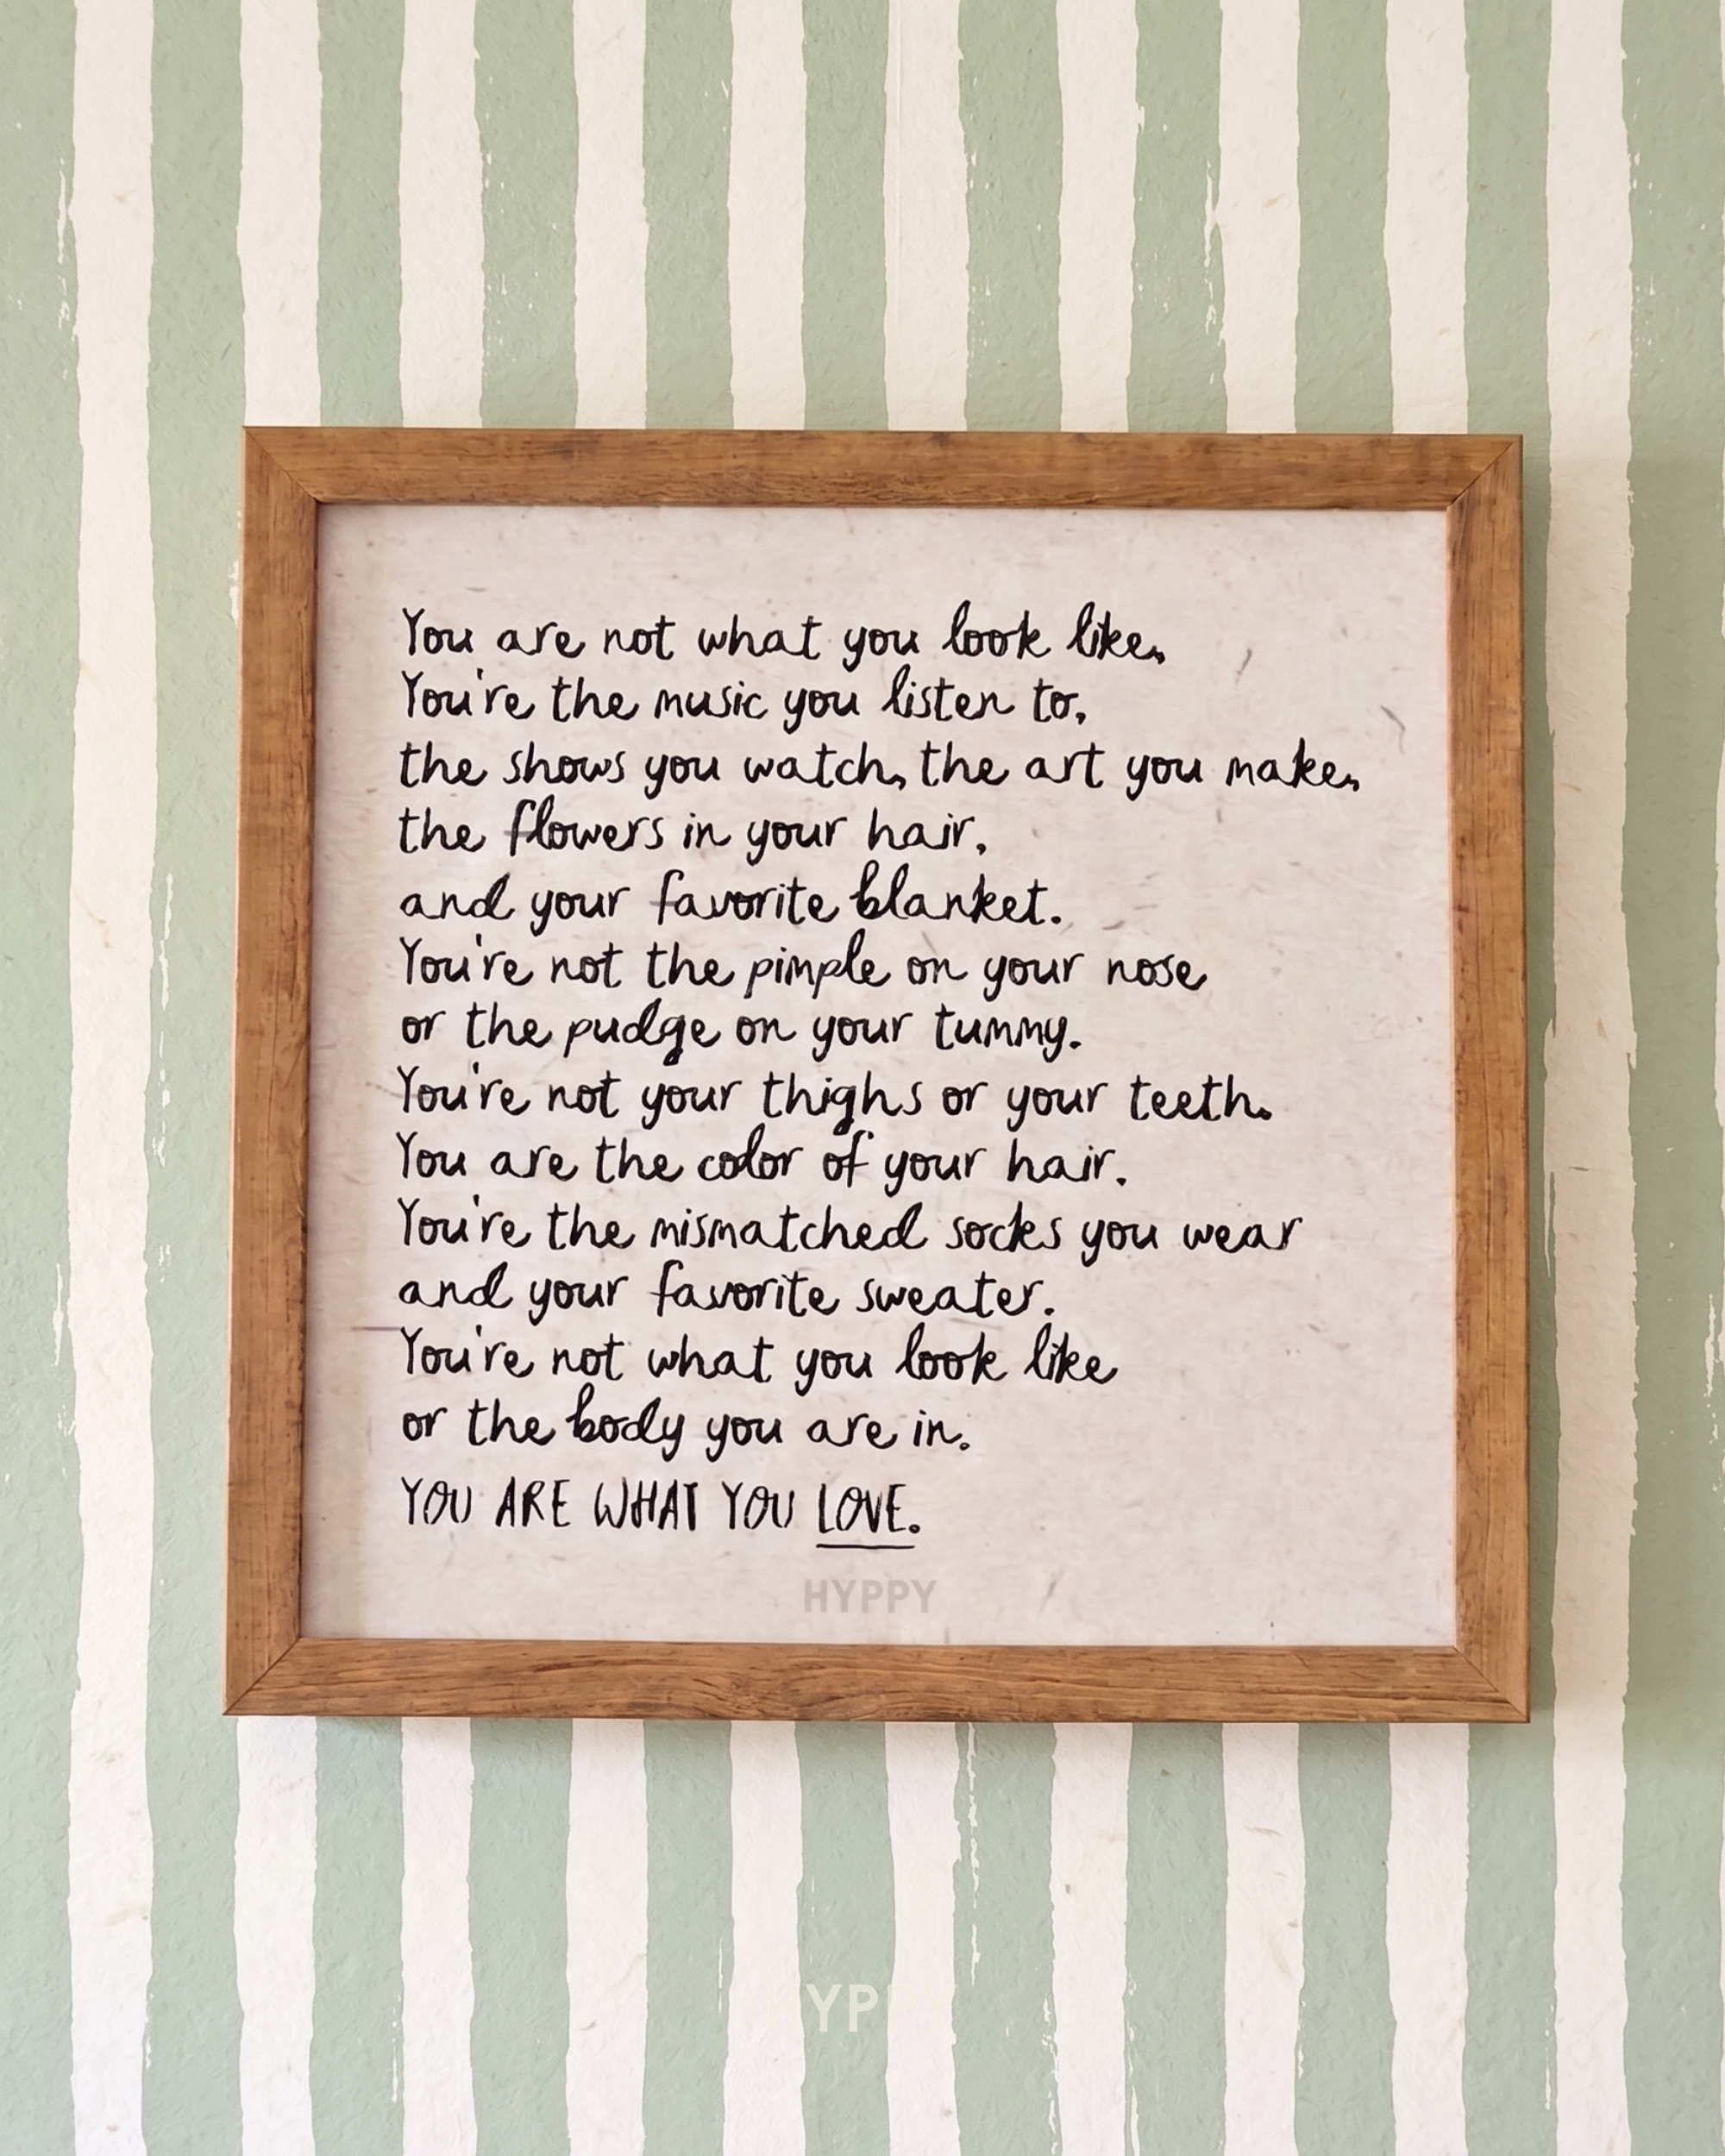 You are not what you look like,
You're the music you listen to,
the shows you watch, the art you make,
the flowers in your hair,
and your favorite blanket.
You're not the pimple on your nose
or the pudge on your tummy.
You're not your thighs or your teeth.
You are the color of your hair.
You're the mismatched socks you wear
and your favorite sweater.
You're not what you look like
or the body you are in.
YOU ARE WHAT YOU LOVE.
HYPPY
HYPPY